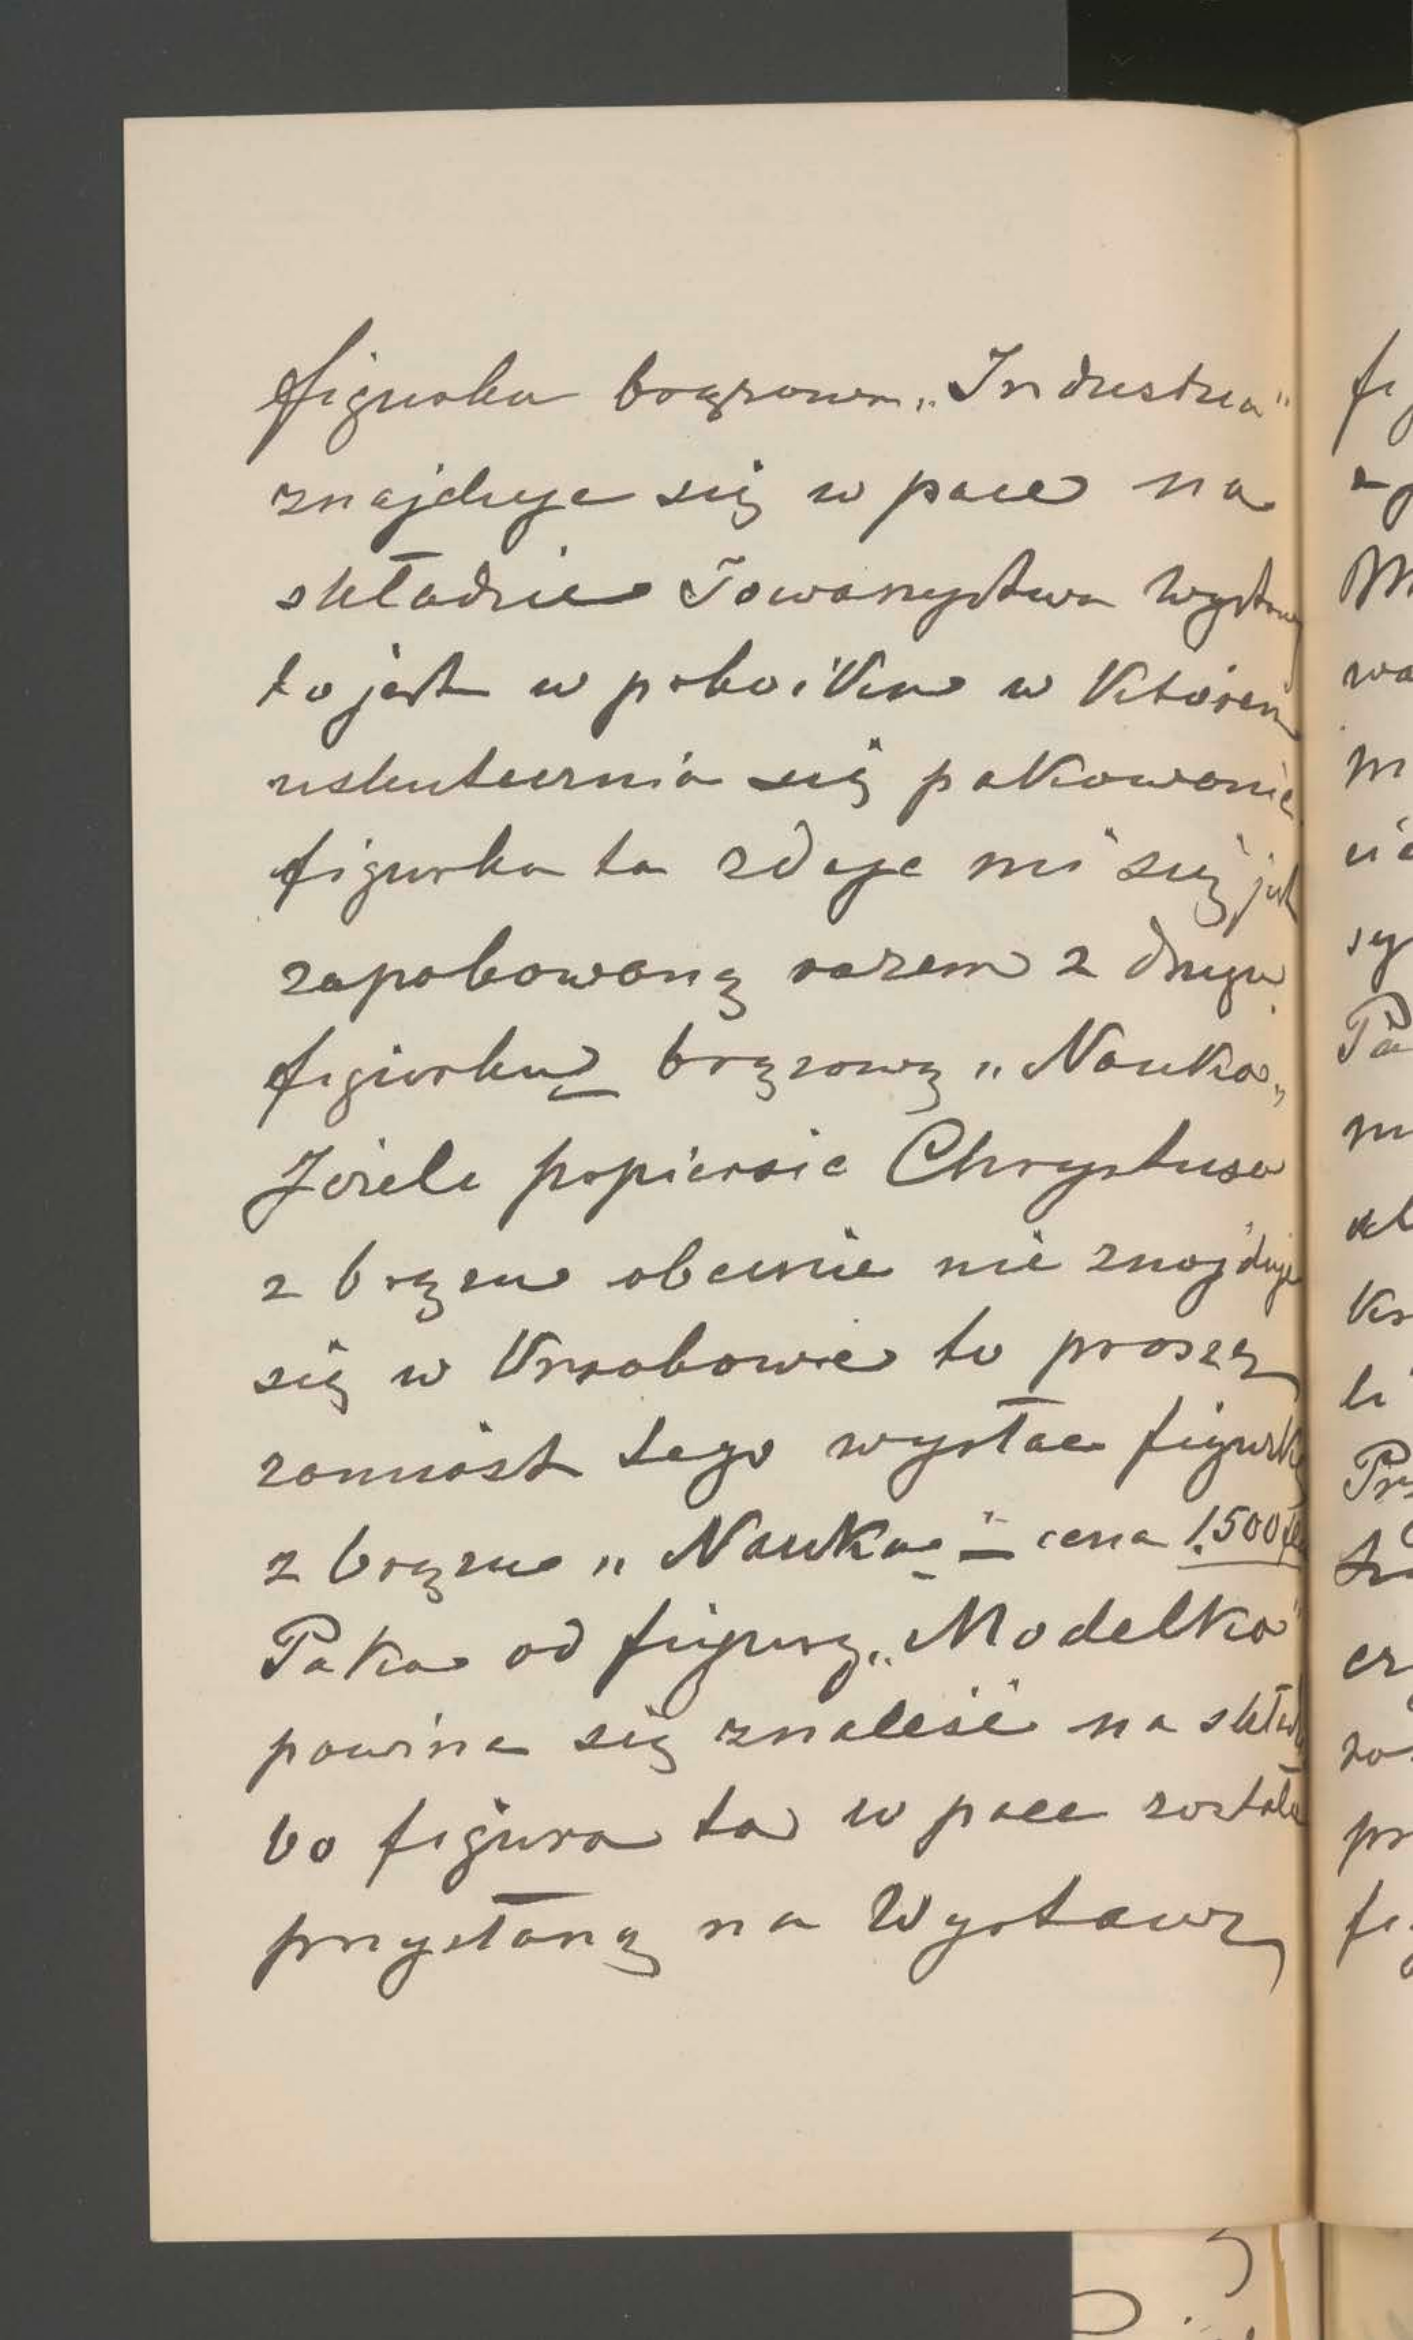 figurka bronzowa „Industria"
znajduje się w pace na
składzie Towarzystwa Wystawy
to jest w pokoiku w którem
uskutecznia się pakowanie
figurka ta zdaje mi się jest
zapakowaną razem z drugą
figurką bronzową „Nauka„
Jeżeli popiersie Chrystusa
z bronzu obecnie nie znajduje
się w Krakowie to proszę
zamiast tego wysłać figurkę
z bronzu „Nauka" – cena 1.500
Paka od figury „Modelka"
powina się znaleść na składzie
bo figura ta w pace została
przysłaną na Wystawę